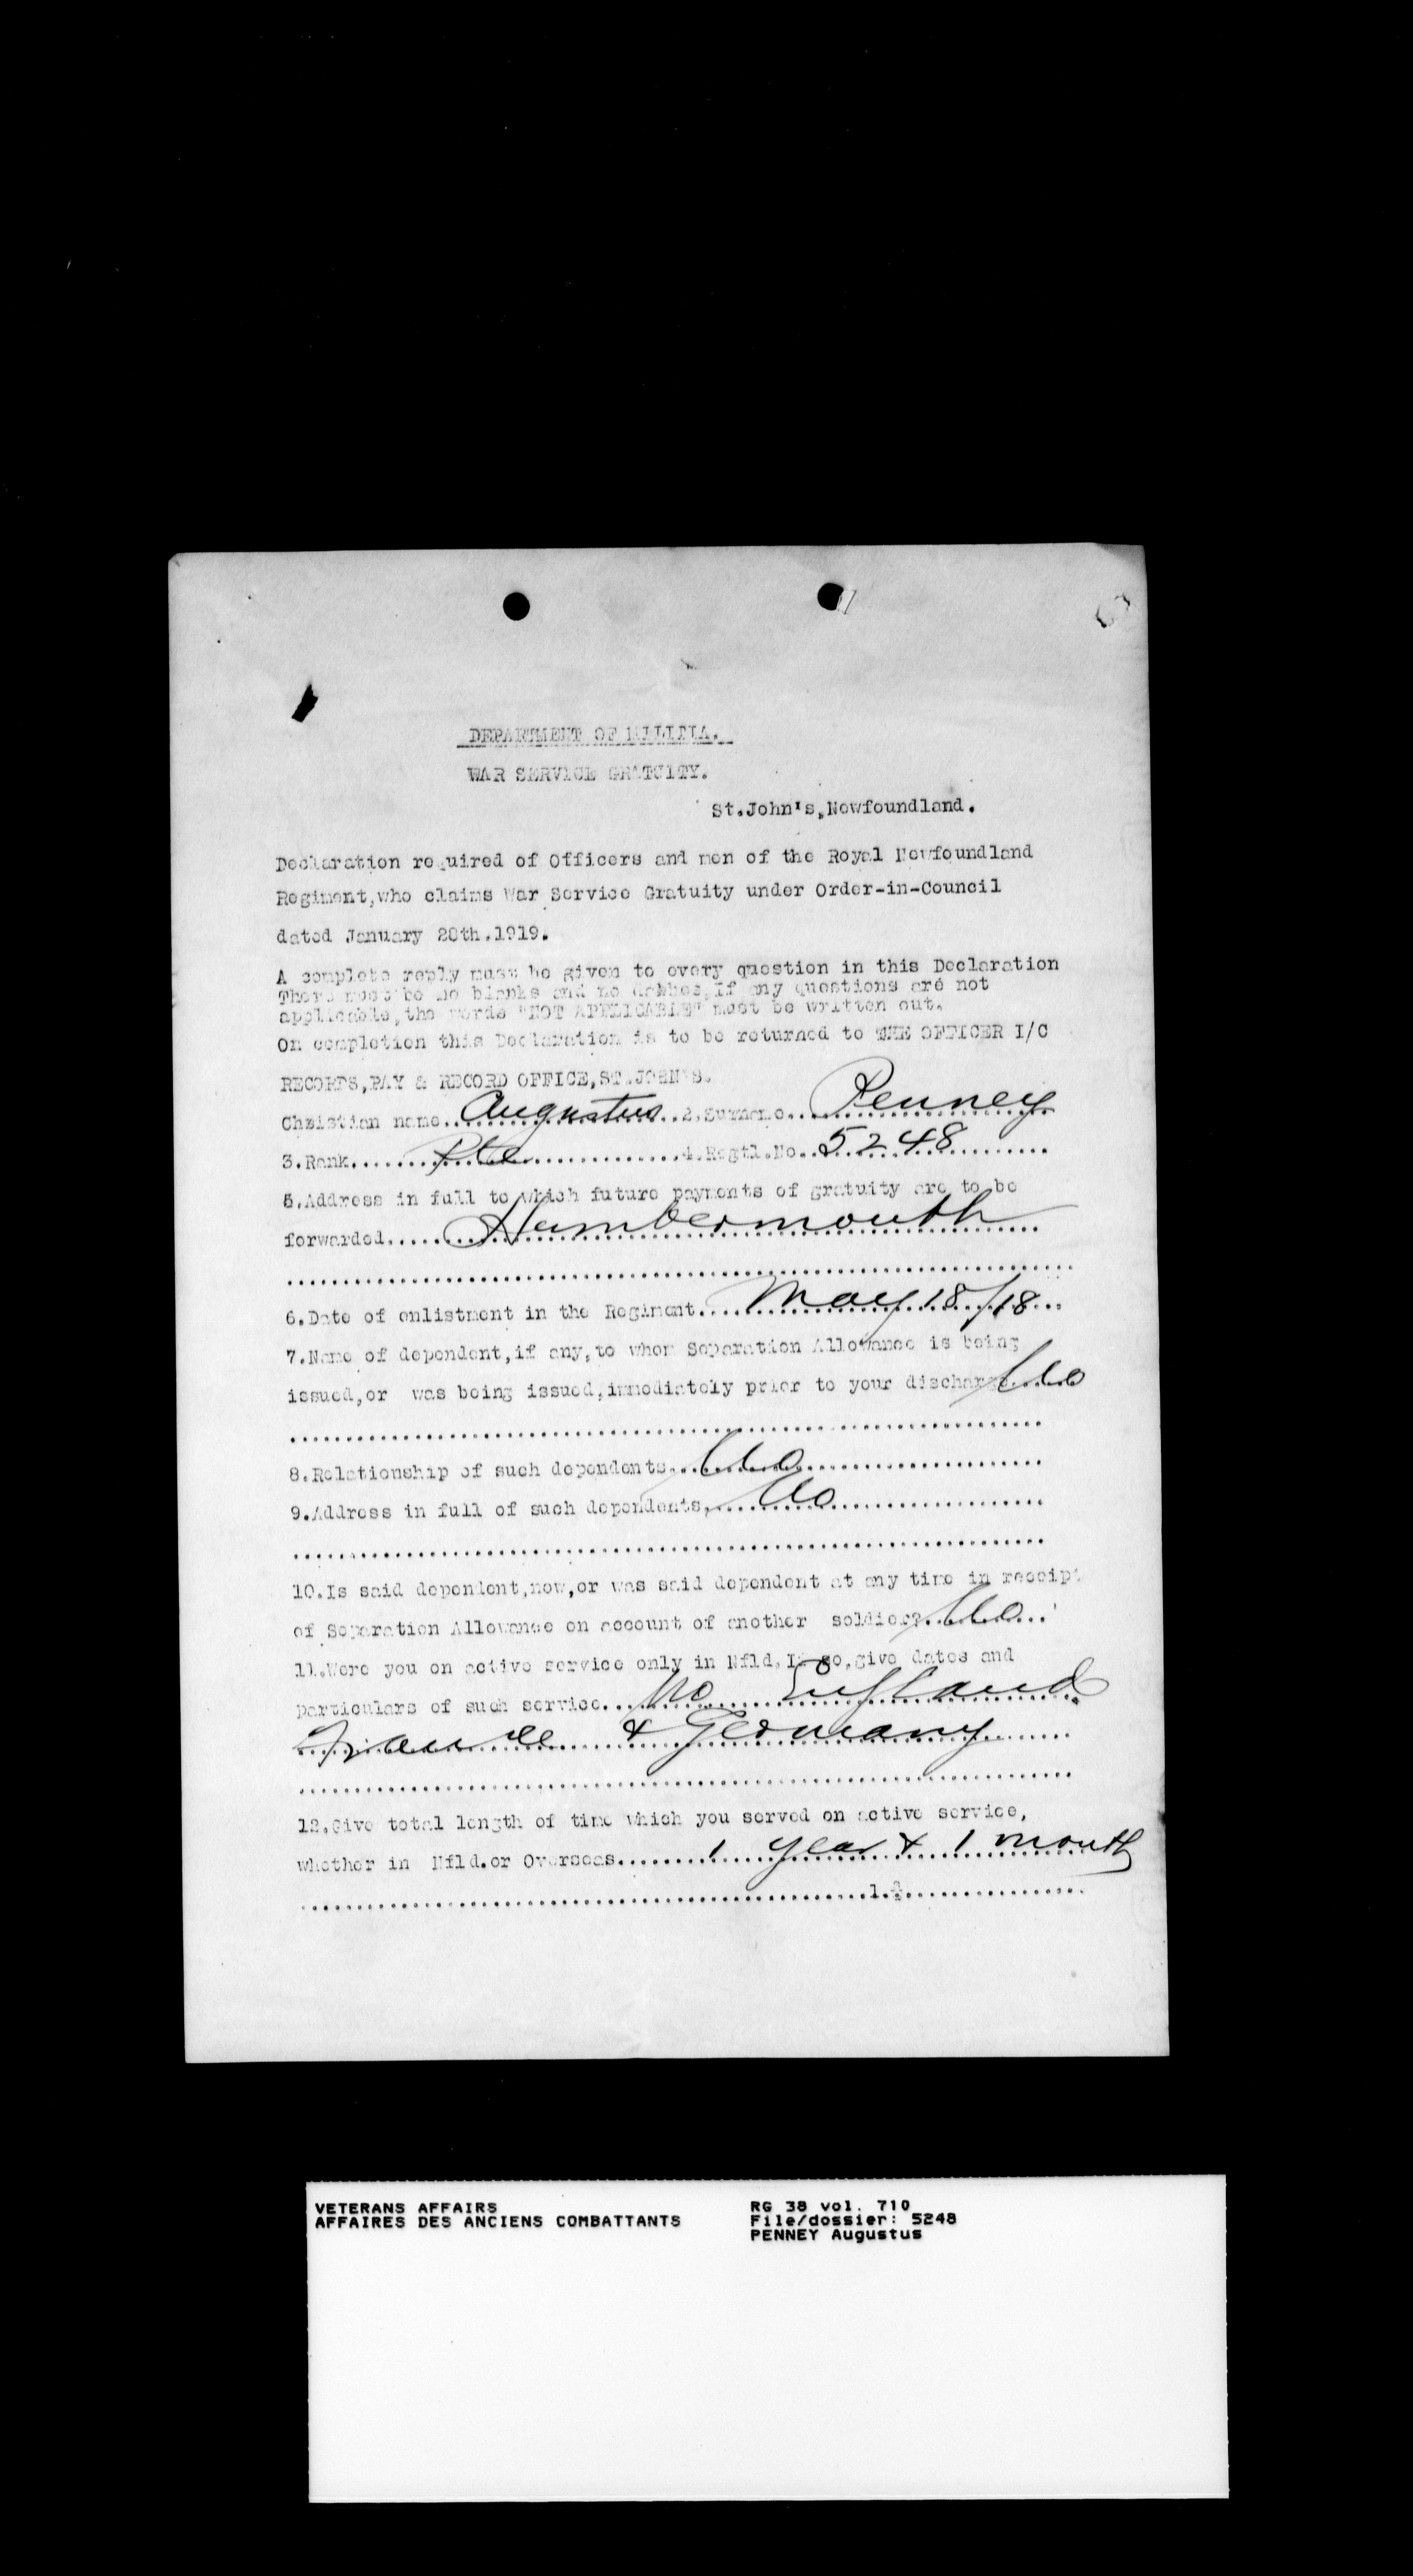 DEPARTMENT OF MILITIA.
WAR SERVICE GRATUITY.
St.John's,Newfoundland.
Declaration required of Officers and men of the Royal Newfoundland
Regiment,who claims War Service Gratuity under Order-in-Council
dated January 28th.1919.
A complete reply must be given to every question in this Declaration
There must be no blanks and no dashes,If any questions are not
applicable,the words "NOT APPLICABLE" must be written out.
On completion this Declaration is to be returned to THE OFFICER I/C
RECORDS,PAY & RECORD OFFICE,ST.JOHN'S.
Christian name..Augustus..2.Surname..Penney
3.Rank.....Pte.....4.Regtl.No..5248
5.Address in full to which future payments of gratuity are to be
forwarded.....Humbermouth
6.Date of enlistment in the Regiment....May 18/18
7.Name of dependent,if any,to whom Separation Allowance is being
issued,or was being issued,immediately prior to your discharge..No
8.Relationship of such dependents...No
9.Address in full of such dependents,...No
10.Is said dependent,now,or was said dependent at any time in receipt
of Separation Allowance on account of another soldier?..No
11.Were you on active service only in Nfld.If so,give dates and
particulars of such service...No England
France & Germany
12.Give total length of time which you served on active service,
whether in Nfld.or Overseas......1 year & 1 month
VETERANS AFFAIRS
AFFAIRES DES ANCIENS COMBATTANTS
RG 38 vol. 710
File/dossier: 5248
PENNEY Augustus